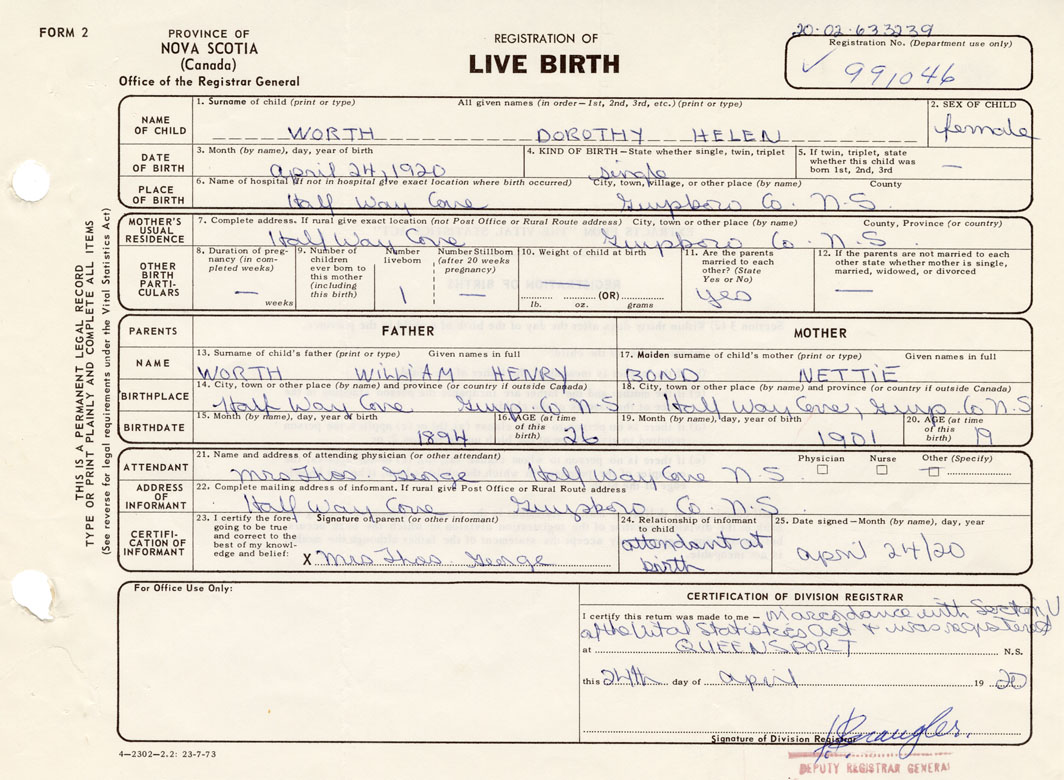 FORM 2
PROVINCE OF
NOVA SCOTIA
(Canada)
Office of the Registrar General
REGISTRATION OF
LIVE BIRTH
20-02-633239
Registration No. (Department use only)
✓ 991046
THIS IS A PERMANENT LEGAL RECORD
TYPE OR PRINT PLAINLY AND COMPLETE ALL ITEMS
(See reverse for legal requirements under the Vital Statistics Act)
NAME OF CHILD
1. Surname of child (print or type) All given names (in order—1st, 2nd, 3rd, etc.) (print or type)
WORTH DOROTHY HELEN
2. SEX OF CHILD
female
DATE OF BIRTH
3. Month (by name), day, year of birth
April 24, 1920
4. KIND OF BIRTH—State whether single, twin, triplet
single
5. If twin, triplet, state whether this child was born 1st, 2nd, 3rd
—
PLACE OF BIRTH
6. Name of hospital (If not in hospital give exact location where birth occurred) City, town, village, or other place (by name) County
Half Way Cove Guysboro Co. N.S.
MOTHER'S USUAL RESIDENCE
7. Complete address. If rural give exact location (not Post Office or Rural Route address) City, town or other place (by name) County, Province (or country)
Half Way Cove Guysboro Co. N.S.
OTHER BIRTH PARTICULARS
8. Duration of pregnancy (in completed weeks)
— weeks
9. Number of children ever born to this mother (including this birth)
Number liveborn
1
Number Stillborn (after 20 weeks pregnancy)
—
10. Weight of child at birth
lb. oz. (OR) grams
11. Are the parents married to each other? (State Yes or No)
yes
12. If the parents are not married to each other state whether mother is single, married, widowed, or divorced
—
PARENTS FATHER MOTHER
NAME
13. Surname of child's father (print or type) Given names in full
WORTH WILLIAM HENRY
17. Maiden surname of child's mother (print or type) Given names in full
BOND NETTIE
BIRTHPLACE
14. City, town or other place (by name) and province (or country if outside Canada)
Half Way Cove Guys. Co. N.S.
18. City, town or other place (by name) and province (or country if outside Canada)
Half Way Cove, Guys. Co N.S
BIRTHDATE
15. Month (by name), day, year of birth
1894
16. AGE (at time of this birth)
26
19. Month (by name), day, year of birth
1901
20. AGE (at time of this birth)
19
ATTENDANT
21. Name and address of attending physician (or other attendant)
Mrs Thos. George Half Way Cove N S.
Physician Nurse Other (Specify)
ADDRESS OF INFORMANT
22. Complete mailing address of informant. If rural give Post Office or Rural Route address
Half Way Cove Guysboro Co. N.S.
CERTIFICATION OF INFORMANT
23. I certify the foregoing to be true and correct to the best of my knowledge and belief:
Signature of parent (or other informant)
X Mrs Thos George
24. Relationship of informant to child
attendant at birth
25. Date signed—Month (by name), day, year
April 24/20
For Office Use Only:
CERTIFICATION OF DIVISION REGISTRAR
I certify this return was made to me — in accordance with Section V
of the Vital Statistics Act & was registered
at QUEENSPORT N.S.
this 24th day of April 19 20
Signature of Division Registrar
DEPUTY REGISTRAR GENERAL
4—2302—2.2: 23-7-73